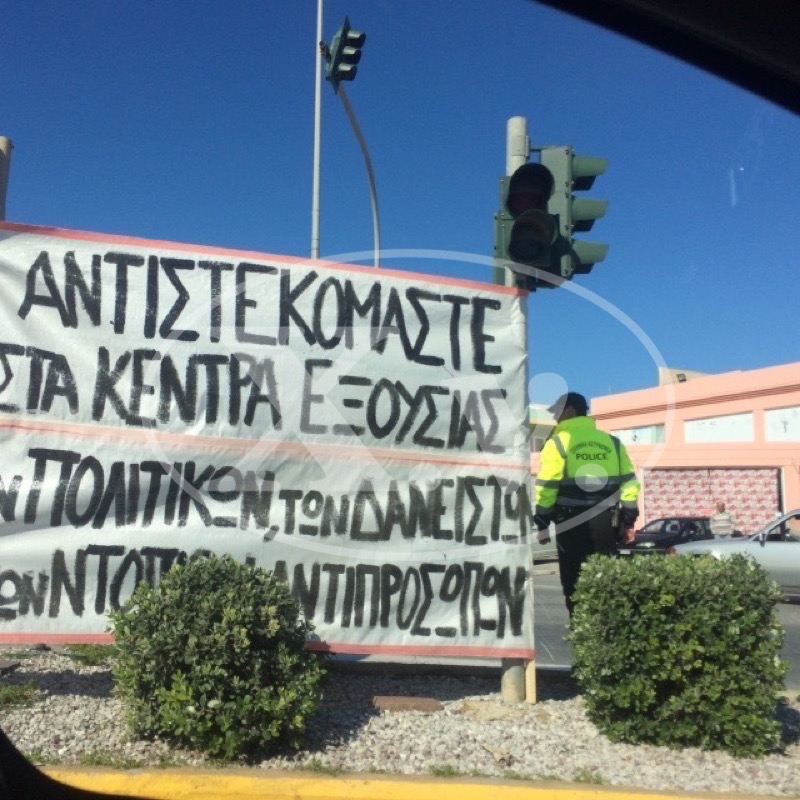 ΑΝΤΙΣΤΕΚΟΜΑΣΤΕ
ΣΤΑ ΚΕΝΤΡΑ ΕΞΟΥΣΙΑΣ
ΠΟΛΙΤΙΚΩΝ, ΤΩΝ ΔΑΝΕΙΣΤΩΝ
ΑΝΤΙΠΡΟΣΩΠΩΝ
POLICE